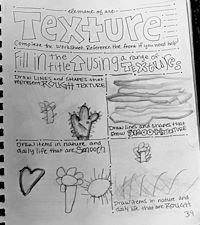 element of art
Texture
Complete the Worksheet. Reference the front if you need help!
Fill in the
title using a range of
TEXTURES
Draw LINES and SHAPES that
represent ROUGH TEXTURE
Draw lines and shapes that
SMOOTH TEXTURE
Draw items in nature and
daily life that are Smooth
Draw items in nature and
daily life that are ROUGH
39